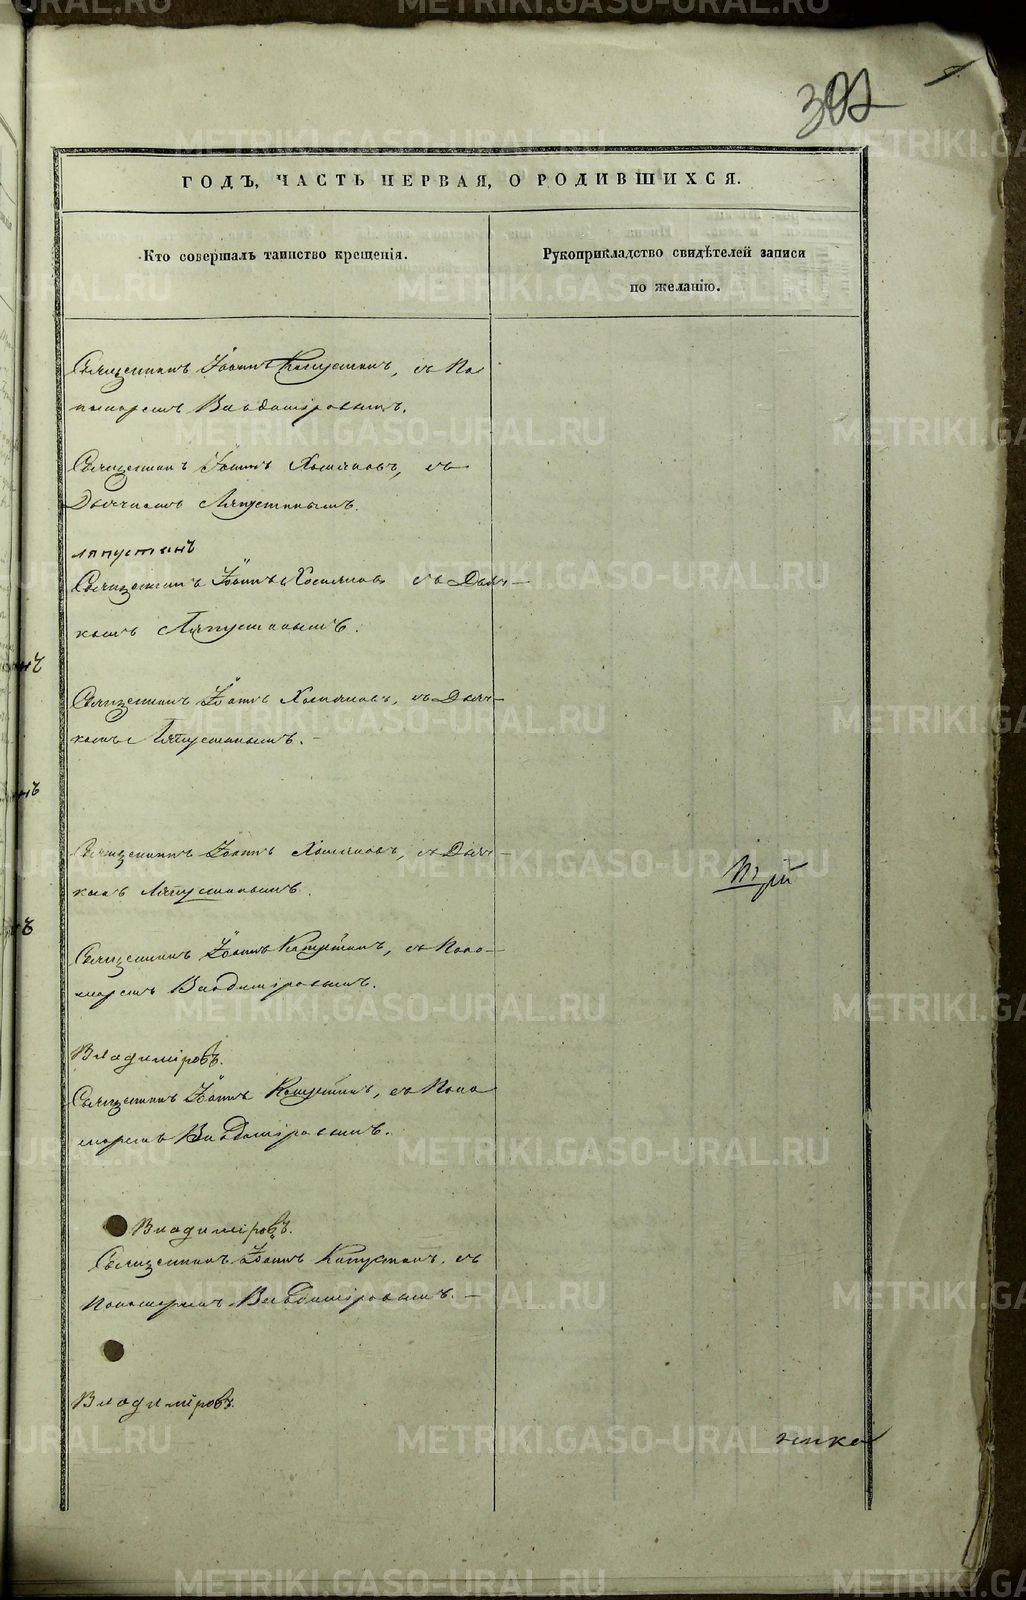 302
ГОДЪ, ЧАСТЬ ПЕРВАЯ, О РОДИВШИХСЯ.
Кто совершалъ таинство крещенія.
Рукоприкладство свидѣтелей записи
по желанію.
Священникъ Іоаннъ Капустинъ, съ По
номаремъ Владиміровымъ.
Священникъ Іоаннъ Хомяковъ, съ
Дьячкомъ Ляпустинымъ.
Ляпустинъ
Священникъ Іоаннъ Хомяковъ съ Дьяч-
комъ Ляпустинымъ.
Священникъ Іоаннъ Хомяковъ, съ Дьяч-
комъ Ляпустинымъ.
Священникъ Іоаннъ Хомяковъ, съ Дьяч-
комъ Ляпустинымъ.
Священникъ Іоаннъ Капустинъ, съ Поно-
маремъ Владиміровымъ.
Владиміровъ.
Священникъ Іоаннъ Капустинъ, съ Поно
маремъ Владиміровымъ.
Владиміровъ.
Священникъ Іоаннъ Капустинъ, съ
Пономаремъ Владиміровымъ.
Владиміровъ.
METRIKI.GASO-URAL.RU